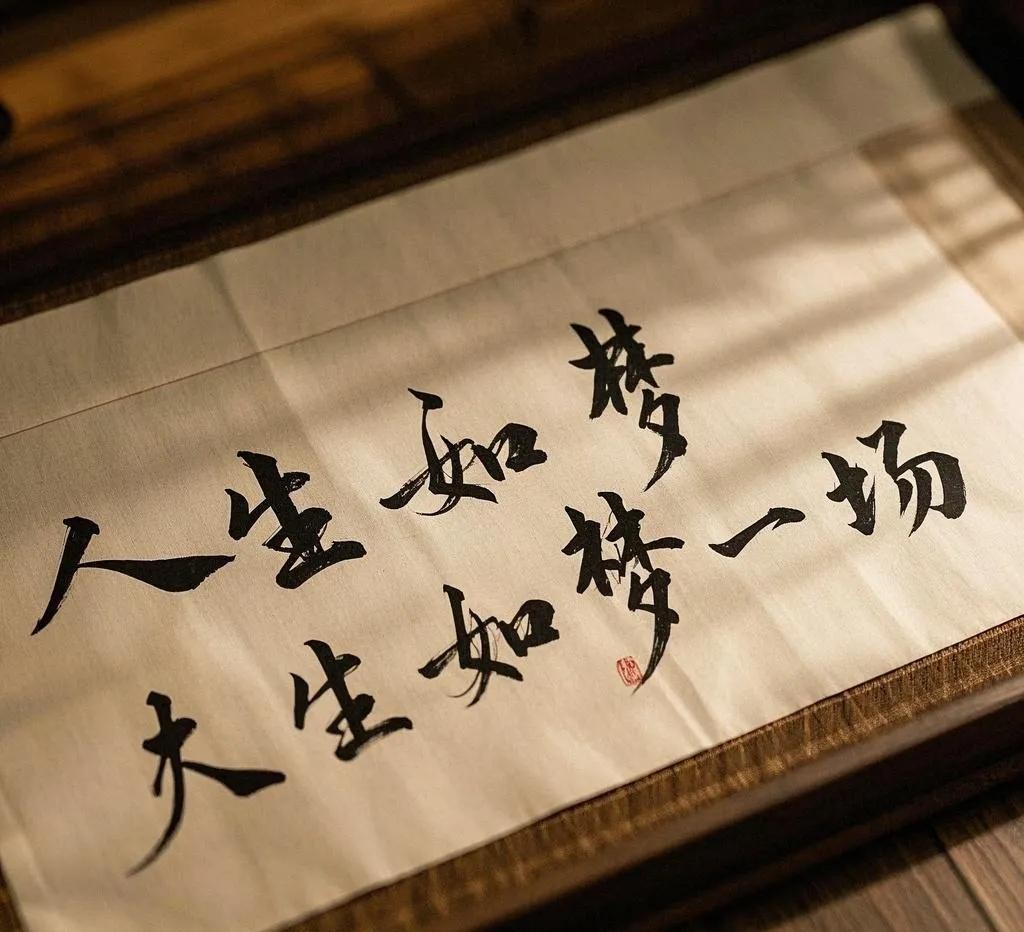 人生如梦
大生如梦一场